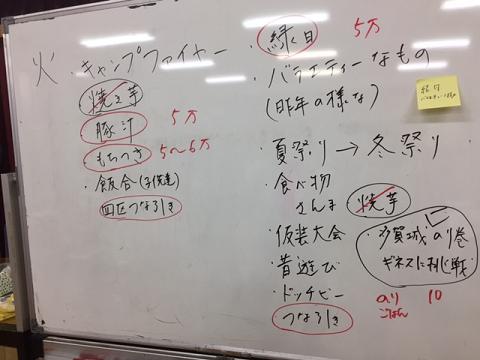 火
・キャンプファイヤー
焼き芋
豚汁 5万
もちつき 5〜6万
・飯合(子供達)
四区つな引き
・縁日 5万
・バラエティーなもの
(昨年の様な)
・夏祭り→冬祭り
・食べ物
さんま 焼芋
・仮装大会
・昔遊び
・ドッチビー
つな引き
・多賀城のり巻
ギネスに挑戦
のり 10
ごはん